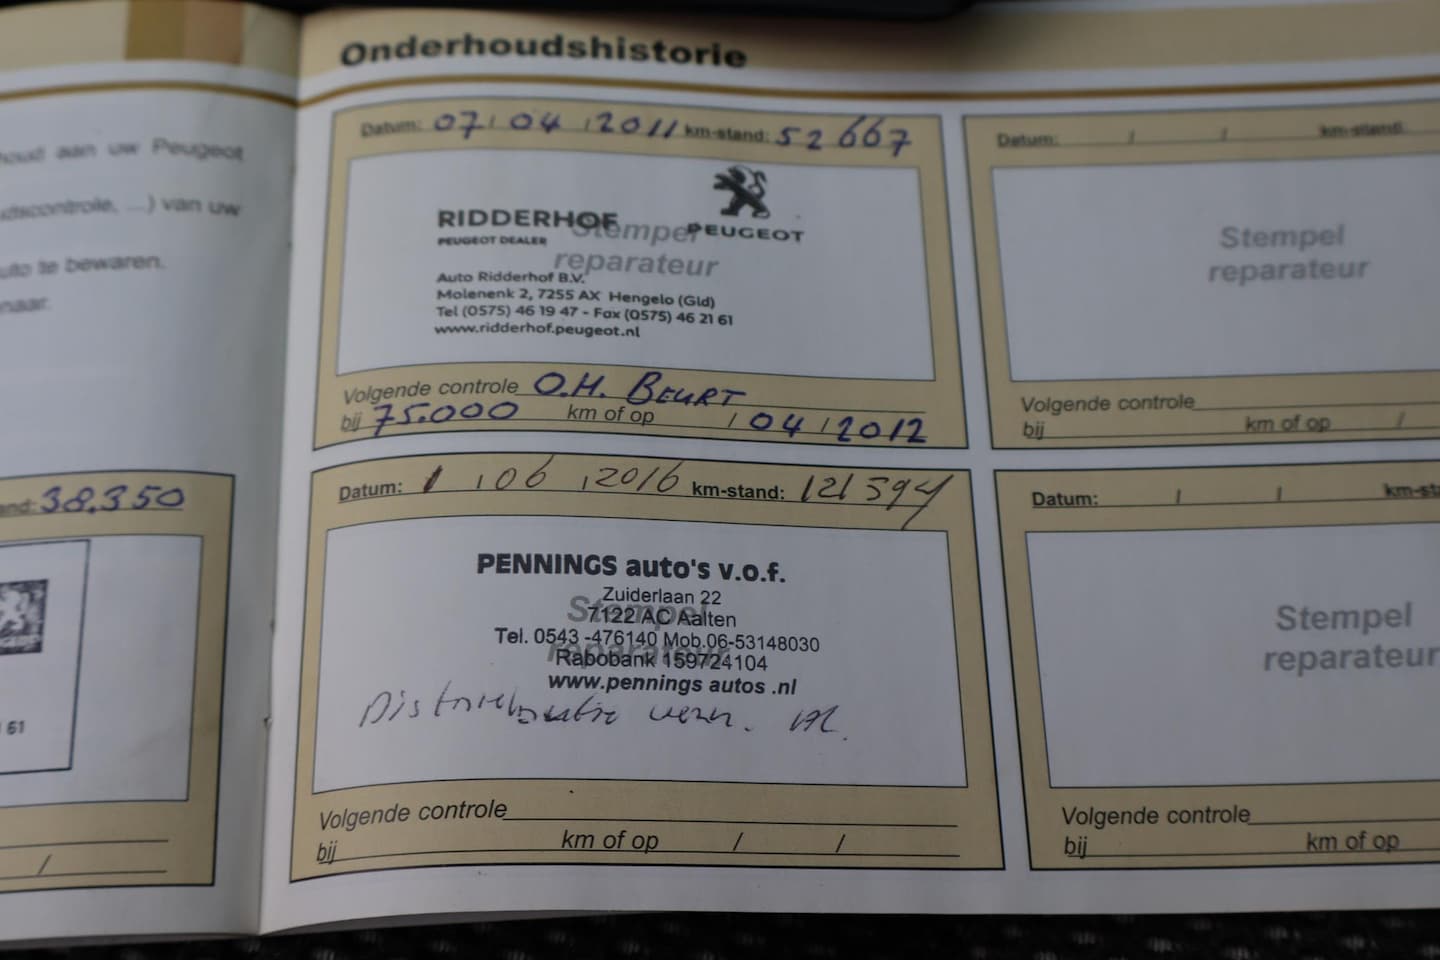 houd aan uw Peugeot
dscontrole, ...) van uw
uto te bewaren.
naar.
and: 38.350
61
/
Onderhoudshistorie
Datum: 07 / 04 / 2011 km-stand: 52667
RIDDERHOF
PEUGEOT DEALER
PEUGEOT
Stempel
reparateur
Auto Ridderhof B.V.
Molenenk 2, 7255 AX Hengelo (Gld)
Tel (0575) 46 19 47 - Fax (0575) 46 21 61
www.ridderhof.peugeot.nl
Volgende controle O.H. BEURT
bij 75.000 km of op / 04 / 2012
Datum: 1 / 06 / 2016 km-stand: 121594
PENNINGS auto's v.o.f.
Zuiderlaan 22
Stempel
7122 AC Aalten
Tel. 0543 -476140 Mob.06-53148030
reparateur
Rabobank 159724104
www.pennings autos .nl
Volgende controle
bij km of op / /
Datum: / / km-stand:
Stempel
reparateur
Volgende controle
bij km of op /
Datum: / / km-sta
Stempel
reparateur
Volgende controle
bij km of op